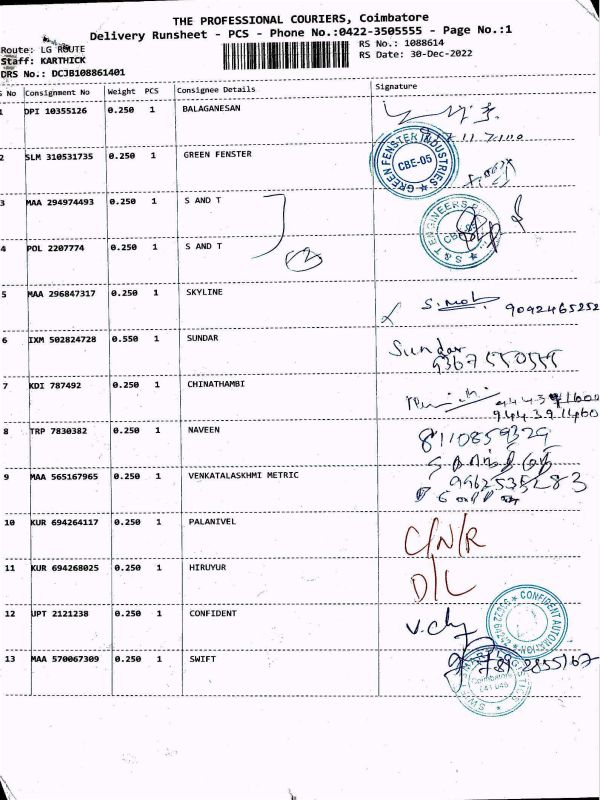 THE PROFESSIONAL COURIERS, Coimbatore
Delivery Runsheet - PCS - Phone No.:0422-3505555 - Page No.:1
Route: LG ROUTE RS No.: 1088614
Staff: KARTHICK RS Date: 30-Dec-2022
DRS No.: DCJB108861401
S No Consignment No Weight PCS Consignee Details Signature
1 DPI 10355126 0.250 1 BALAGANESAN
2 SLM 310531735 0.250 1 GREEN FENSTER
GREEN FENSTER INDUSTRIES
CBE-05
3 MAA 294974493 0.250 1 S AND T
S & T ENGINEERS
4 POL 2207774 0.250 1 S AND T
5 MAA 296847317 0.250 1 SKYLINE
9092465252
6 IXM 502824728 0.550 1 SUNDAR Sundar
7 KDI 787492 0.250 1 CHINATHAMBI
8 TRP 7830382 0.250 1 NAVEEN 8110859329
9 MAA 565167965 0.250 1 VENKATALASKHMI METRIC 9962535283
10 KUR 694264117 0.250 1 PALANIVEL C/N/R
11 KUR 694268025 0.250 1 HIRUYUR D/L
12 JPT 2121238 0.250 1 CONFIDENT
CONFIDENT AUTOMATION
13 MAA 570067309 0.250 1 SWIFT
Coimbatore
641 046